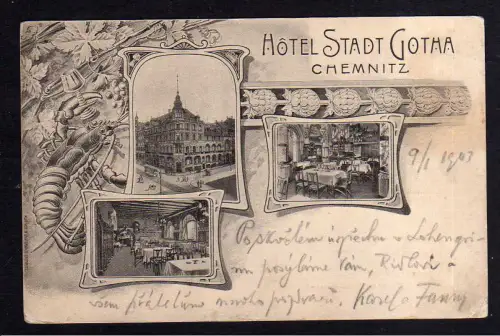 HÔTEL STADT GOTHA
CHEMNITZ
9/1 1903
Po skvělém úspěchu v Lohengri-
nu posýláme Vám, a
všem přátelům mnoho pozdravů. Karel a Fanny